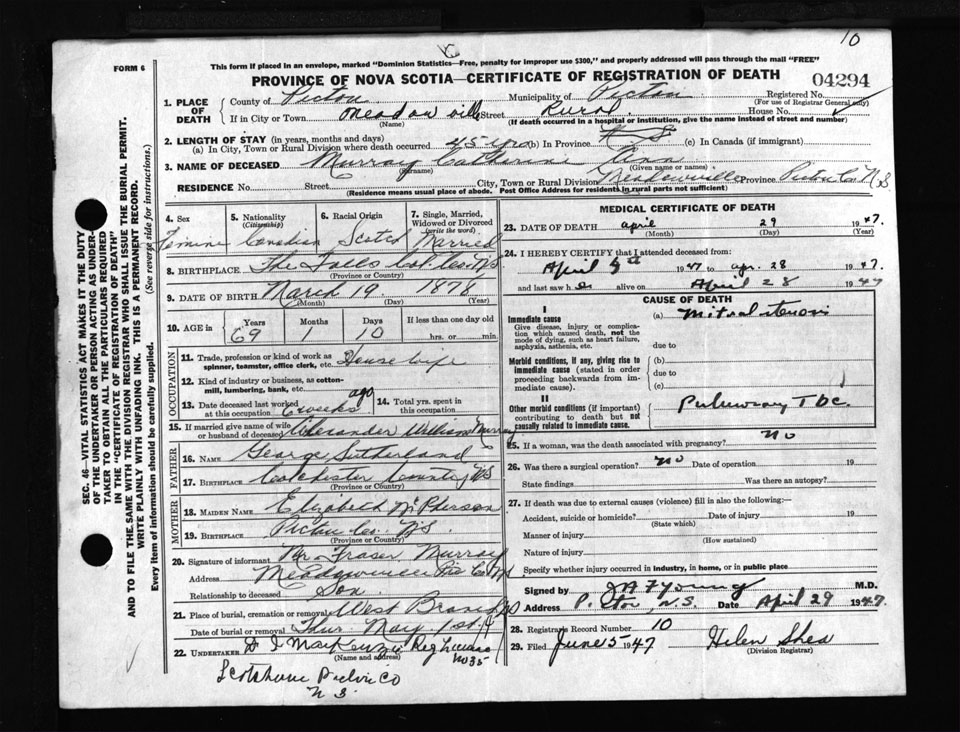 10
This form if placed in an envelope, marked "Dominion Statistics—Free, penalty for improper use $300," and properly addressed will pass through the mail "FREE"
FORM 6
PROVINCE OF NOVA SCOTIA—CERTIFICATE OF REGISTRATION OF DEATH
04294
SEC. 46—VITAL STATISTICS ACT MAKES IT THE DUTY
OF THE UNDERTAKER OR PERSON ACTING AS UNDER-
TAKER TO OBTAIN ALL THE PARTICULARS REQUIRED
IN THE "CERTIFICATE OF REGISTRATION OF DEATH"
AND TO FILE THE SAME WITH THE DIVISION REGISTRAR WHO SHALL ISSUE THE BURIAL PERMIT.
WRITE PLAINLY WITH UNFADING INK. THIS IS A PERMANENT RECORD.
Every item of information should be carefully supplied. (See reverse side for instructions.)
1. PLACE OF DEATH
County of Pictou Municipality of Pictou Registered No.
(For use of Registrar General only)
If in City or Town Meadowville Street Rural House No.
(Name) (If death occurred in a hospital or institution, give the name instead of street and number)
2. LENGTH OF STAY (in years, months and days)
(a) In City, Town or Rural Division where death occurred 45 yrs (b) In Province (c) In Canada (if immigrant)
3. NAME OF DECEASED Murray Catherine Ann
(Surname) (Given name or names)
RESIDENCE No. Street City, Town or Rural Division Meadowville Province Pictou Co N.S
(Residence means usual place of abode. Post Office Address for residents in rural parts not sufficient)
4. Sex 5. Nationality (Citizenship) 6. Racial Origin 7. Single, Married, Widowed or Divorced (write the word)
Femine Canadian Scotch Married
8. BIRTHPLACE The Falls Col. Co. N.S
(Province or Country)
9. DATE OF BIRTH March 19 1878
(Month) (Day) (Year)
10. AGE in Years Months Days If less than one day old
69 1 10 hrs. or min.
OCCUPATION
11. Trade, profession or kind of work as spinner, teamster, office clerk, etc. House wife
12. Kind of industry or business, as cotton-mill, lumbering, bank, etc.
13. Date deceased last worked at this occupation 6 weeks ago 14. Total yrs. spent in this occupation
15. If married give name of wife or husband of deceased Alexander William Murray
FATHER
16. Name George Sutherland
17. Birthplace Colchester County NS
(Province or Country)
MOTHER
18. Maiden Name Elizabeth McPherson
19. Birthplace Pictou Co. N.S.
(Province or Country)
20. Signature of informant Mr Fraser Murray
Address Meadowville Pic Co NS
Relationship to deceased Son
21. Place of burial, cremation or removal West Branch NS
Date of burial or cremation Thur. May 1st
22. UNDERTAKER MacKenzie Reg License No 35
(Name and address)
Scotsburn Pictou Co
N S.
MEDICAL CERTIFICATE OF DEATH
23. DATE OF DEATH April 29 1947.
(Month) (Day) (Year)
24. I HEREBY CERTIFY that I attended deceased from:
April 1947 to apr. 28 1947.
and last saw h er alive on April 28 1947
CAUSE OF DEATH
I
Immediate cause
Give disease, injury or complication which caused death, not the mode of dying, such as heart failure, asphyxia, asthenia, etc.
(a) Mitral stenosis
due to
Morbid conditions, if any, giving rise to immediate cause (stated in order proceeding backwards from immediate cause).
(b)
due to
(c)
II
Other morbid conditions (if important) contributing to death but not causally related to immediate cause.
Pulmonary TBC.
25. If a woman, was the death associated with pregnancy? no
26. Was there a surgical operation? no Date of operation 19
State findings Was there an autopsy?
27. If death was due to external causes (violence) fill in also the following:—
Accident, suicide or homicide? Date of injury 19
(State which)
Manner of injury
(How sustained)
Nature of injury
Specify whether injury occurred in industry, in home, or in public place
Signed by J A F Young M.D.
Address Pictou, N.S. Date April 29 1947.
28. Registrars Record Number 10
29. Filed June 5 1947 Helen Shea
(Division Registrar)